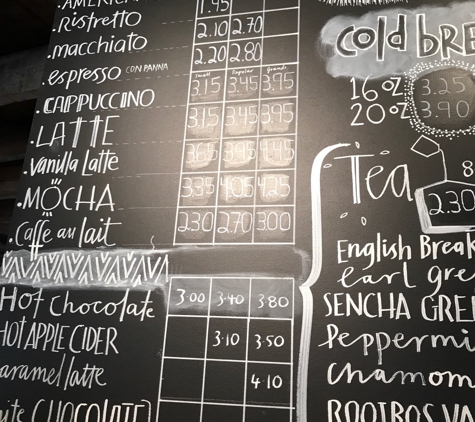 .AMERICA
1.95
.Ristretto
2.10 2.70
.macchiato
2.20 2.80
.espresso CON PANNA
Small Regular Grande
3.15 3.45 3.95
.CAPPUCCINO
3.15 3.45 3.95
.LATTE
3.65 3.95 4.45
.vanilla latte
3.35 4.05 4.25
.MOCHA
2.30 2.70 3.00
.Caffe au lait
Hot Chocolate
3.00 3.40 3.80
HOT APPLE CIDER
3.10 3.50
aramel latte
4.10
ite CHOCOLATE
cold BRE
16 oz 3.25
20 oz 3.90
Tea
8
2.30
English Break
earl gre
SENCHA GREE
Peppermi
chamom
ROOIBOS VA